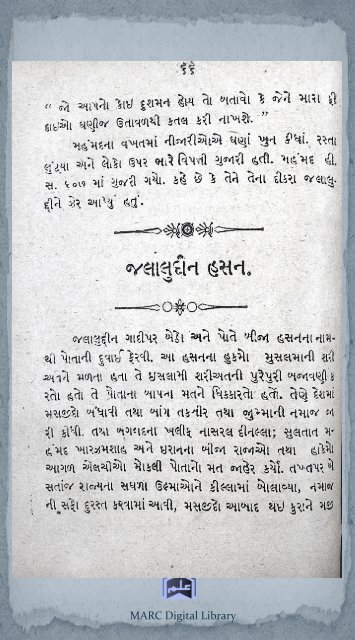 ૬૬
“ જો આપનો કોઇ દુશમન હોય તો બતાવો કે જેને મારા ફી
દાઇઓ ઘણીજ ઉતાવળથી કતલ કરી નાખશે. ”
મહંમદના વખતમાં નીજારીઓએ ઘણાં ખુન કીધાં. રસ્તા
લુંટ્યા અને લોકો ઉપર ભારે વિપતી ગુજારી હતી. મહંમદ હી.
સ. ૬૦૭ માં ગુજરી ગયો. કહે છે કે તેને તેના દીકરા જલાલુ-
દ્દીને ઝેર આપ્યું હતું.
જલાલુદ્દીન હસન.
જલાલુદ્દીન ગાદીપર બેઠો અને પોતે બીજા હસનના નામ-
થી પોતાની દુવાઈ ફેરવી. આ હસનના હુકમો મુસલમાની શરી
અતને મળતા હતા તે ઇસલામી શરીઅતની પુરેપુરી બજાવણી ક
રતો હતો તે પોતાના બાપના મતને ધિક્કારતો હતો. તેણે દેશમાં
મસજીદો બંધાવી તથા બાંગ તકબીર તથા જુમ્માની નમાજ જા
રી કીધી. તથા બગદાદના ખલીફ નાસરલ દીનલ્લા; સુલતાન મ-
હંમદ ખારઝમશાહ અને ઇરાનના બીજા રાજાઓ તથા હાકેમો
આગળ એલચીઓ મોકલી પોતાનો મત જાહેર કર્યો. તખ્તપર બે
સતાંજ રાજ્યના સઘળા ઉલ્માઓને કીલ્લામાં બોલાવ્યા, નમાજ
ની સફો દુરસ્ત કરવામાં આવી, મસજીદો આબાદ થઇ કુરાને મજી
MARC Digital Library